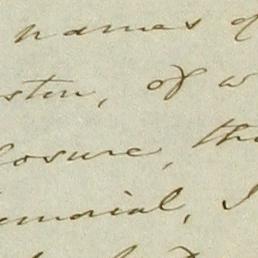 names of
sten, of w
losure, the
emorial, I